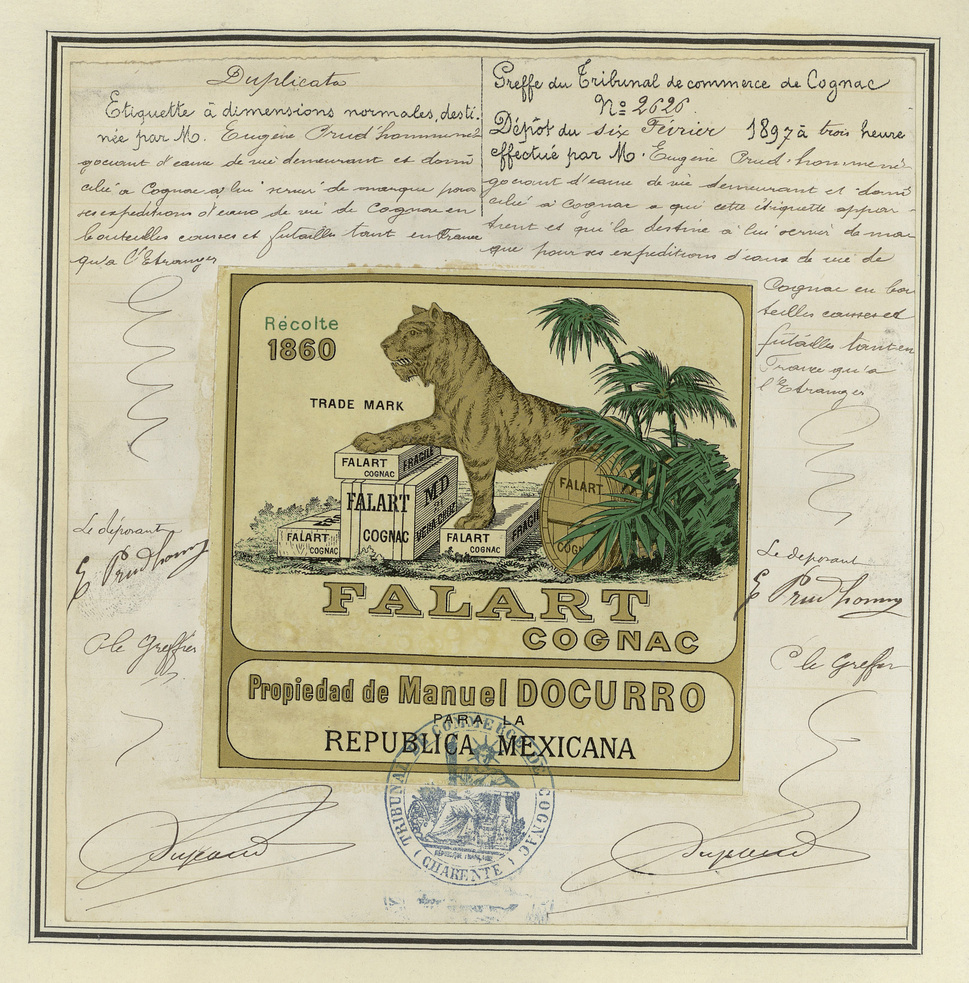 Duplicata
Etiquette à dimensions normales, desti-
née par M. Eugène Prud'homme né-
gociant d'eaux de vie demeurant et domi
cilié à Cognac à lui servir de marque pour
ses expéditions d'eaux de vie de Cognac en
bouteilles caisses et futailles tant en France
qu'à l'Etranger
Le déposant
E Prudhomme
C le Greffier
Greffe du Tribunal de commerce de Cognac
No 2626
Dépôt du six Février 1897 à trois heure
effectué par M. Eugène Prud'homme né-
gociant d'eaux de vie demeurant et domi
cilié à Cognac a qui cette étiquette appar-
tient et qui la destine à lui servir de mar
que pour ses expéditions d'eaux de vie de
Cognac en bou
teilles caisses et
futailles tant en
France qu'à
l'Etranger
Le déposant
E Prudhomme
C le Greffier
Récolte
1860
TRADE MARK
FALART
COGNAC
FRAGILE
FALART
COGNAC
MD
VERA CRUZ
FALART
COGNAC
FALART
COGNAC
FRAGIL
FALART
COGNAC
FALART
COGNAC
Propiedad de Manuel DOCURRO
PARA LA
REPUBLICA MEXICANA
TRIBUNAL DE COMMERCE DE COGNAC
REPUBLIQUE FRANÇAISE
(CHARENTE)